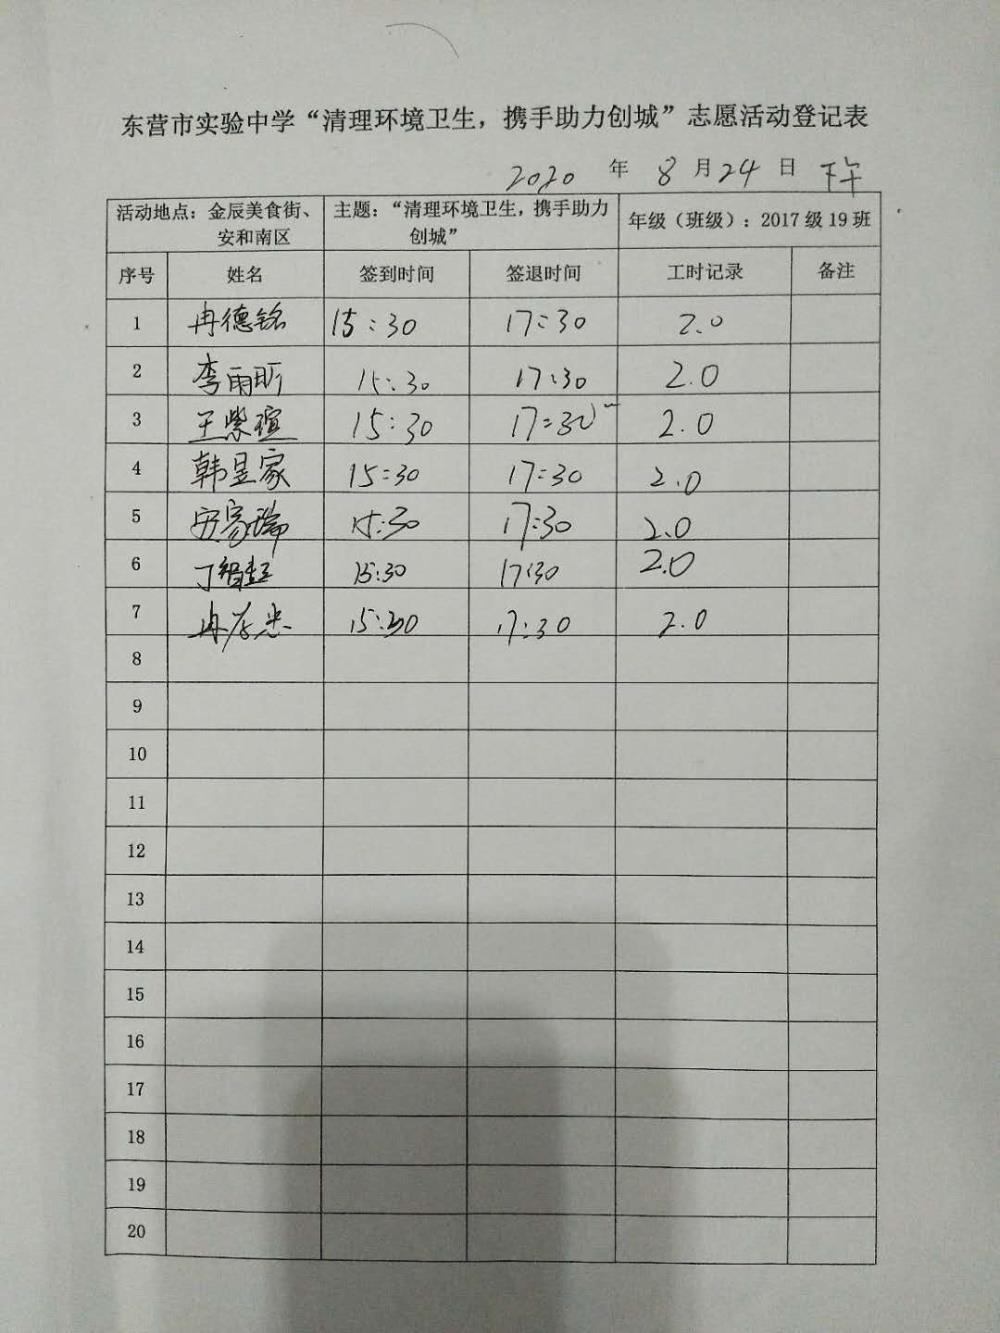 东营市实验中学“清理环境卫生，携手助力创城”志愿活动登记表
2020 年 8 月 24 日 下午
活动地点：金辰美食街、安和南区 主题：“清理环境卫生，携手助力创城” 年级（班级）：2017 级 19 班
序号 姓名 签到时间 签退时间 工时记录 备注
1 冉德铭 15:30 17:30 2.0
2 李雨昕 15:30 17:30 2.0
3 王紫萱 15:30 17:30 2.0
4 韩昱家 15:30 17:30 2.0
5 安家瑞 15:30 17:30 2.0
6 丁智 15:30 17:30 2.0
7 冉 忠 15:30 17:30 2.0
8
9
10
11
12
13
14
15
16
17
18
19
20